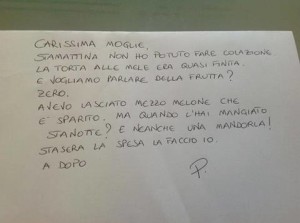 CARISSIMA MOGLIE,
STAMATTINA NON HO POTUTO FARE COLAZIONE
LA TORTA ALLE MELE ERA QUASI FINITA.
E VOGLIAMO PARLARE DELLA FRUTTA?
ZERO.
AVEVO LASCIATO MEZZO MELONE CHE
E' SPARITO. MA QUANDO L'HAI MANGIATO,
STANOTTE? E NEANCHE UNA MANDORLA!
STASERA LA SPESA LA FACCIO IO.
A DOPO
P.